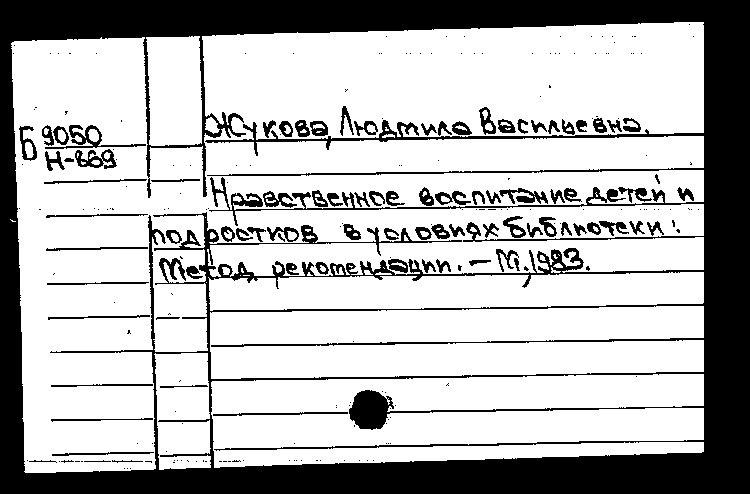 Б 9050
Н-869
Жукова, Людмила Васильевна.
Нравственное воспитание детей и
подростков в условиях библиотеки:
Метод. рекомендации. – М., 1983.